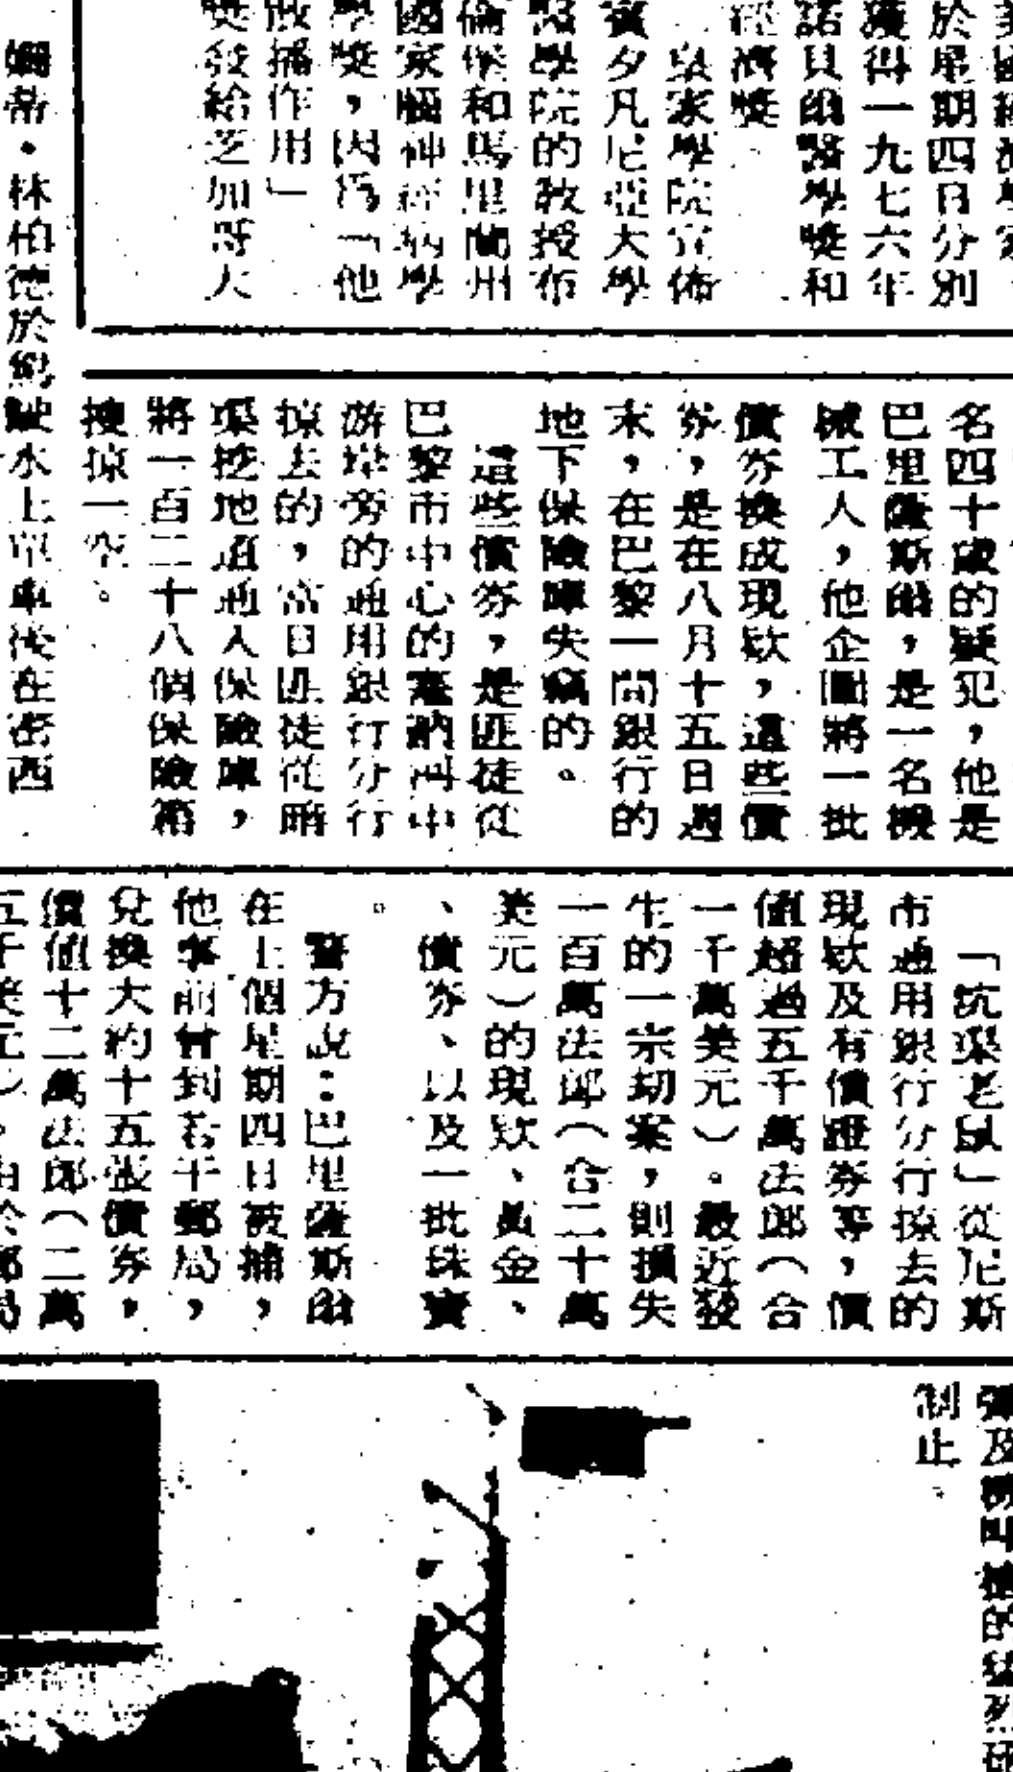 於星期四日分別
獲得一九七六年
諾貝爾醫學獎和
經濟獎
皇家學院宣佈
賓夕凡尼亞大學
醫學院的教授布
倫堡和馬里蘭州
國家腦神經病學
學獎，因為「他
散播作用」
獎發給芝加哥大
名四十歲的疑犯，他是
巴里薩斯爾，是一名機
械工人，他企圖將一批
債券換成現欵，這些債
券，是在八月十五日週
末，在巴黎一間銀行的
地下保險庫失竊的。
這些債券，是匪徒從
巴黎市中心的塞納河中
游岸旁的通用銀行分行
掠去的，當日匪徒從暗
渠挖地道通入保險庫，
將一百二十八個保險箱
搜掠一空。
蒂・林柏德於駕駛水上單車後在密西
「坑渠老鼠」從尼斯
市通用銀行分行掠去的
現欵及有價證券等，價
值超過五千萬法郎（合
一千萬美元）。最近發
生的一宗刧案，則損失
一百萬法郎（合二十萬
美元）的現欵、黃金、
、債券、以及一批珠寶
。
警方說：巴里薩斯爾
在上個星期四日被捕，
他事前曾到若干郵局，
兌換大約十五張債券，
價值十二萬法郎（二萬
五千美元），由於郵局
彈及
的猛烈
制止。